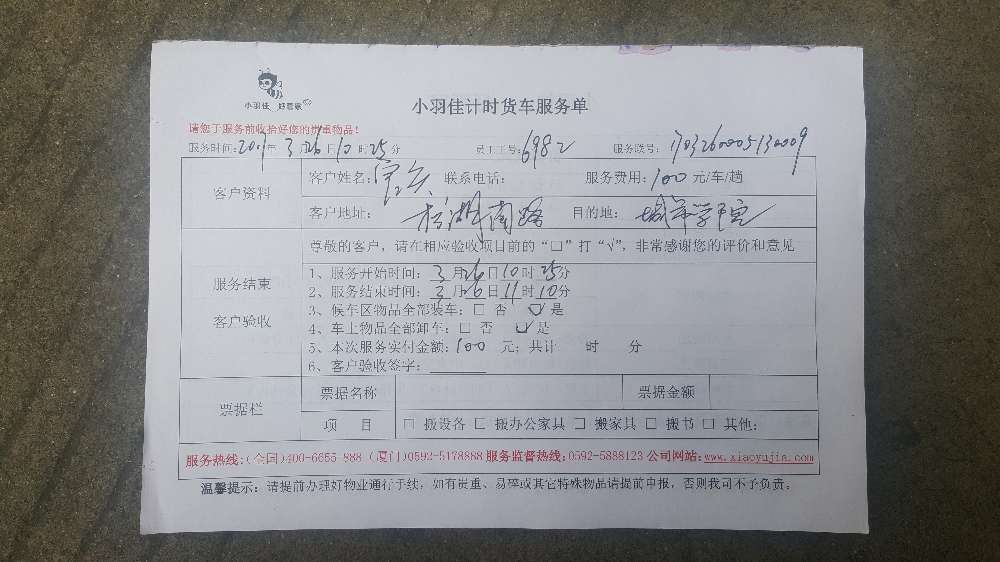 小羽佳 好管家
小羽佳计时货车服务单
请您于服务前收拾好您的贵重物品！
服务时间:2017年3月26日10时25分 员工工号:6982 服务联号:1703260005130009
客户资料
客户姓名: 联系电话: 服务费用:100元/车/趟
客户地址: 松湖南路 目的地: 城市学院
尊敬的客户，请在相应验收项目前的“□”打“√”，非常感谢您的评价和意见
服务结束
客户验收
1、服务开始时间：3月26日10时25分
2、服务结束时间：3月26日11时10分
3、候车区物品全部装车：□ 否 ☑是
4、车上物品全部卸车：□ 否 ☑是
5、本次服务实付金额：100 元；共计 时 分
6、客户验收签字：
票据栏
票据名称 票据金额
项 目 □ 搬设备 □ 搬办公家具 □ 搬家具 □ 搬书 □ 其他:
服务热线:(全国)400-6655-888 (厦门)0592-5178888 服务监督热线:0592-5888123 公司网站:www.xiaoyujia.com
温馨提示：请提前办理好物业通行手续，如有贵重、易碎或其它特殊物品请提前申报，否则我司不予负责。